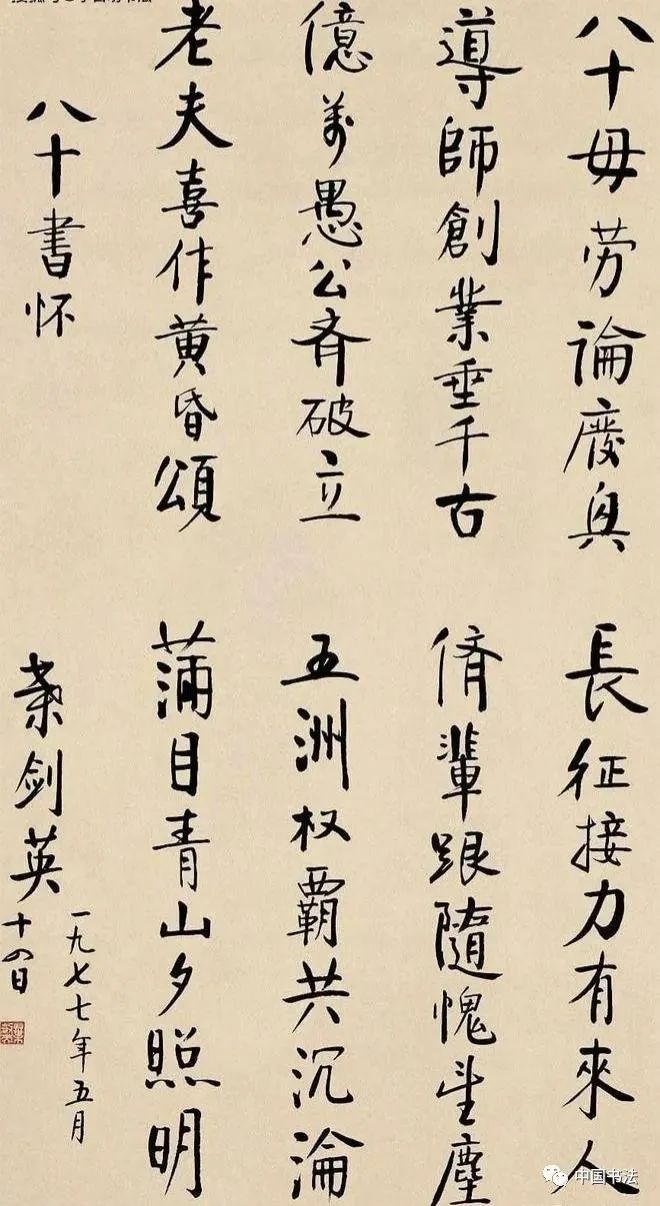 八十毋劳論廢興 長征接力有來人
導師創業垂千古 儕輩跟隨愧望塵
億萬愚公齐破立 五洲权覇共沉淪
老夫喜作黄昏頌 满目青山夕照明
八十書怀 葉剑英
一九七七年五月
十四日
中国书法